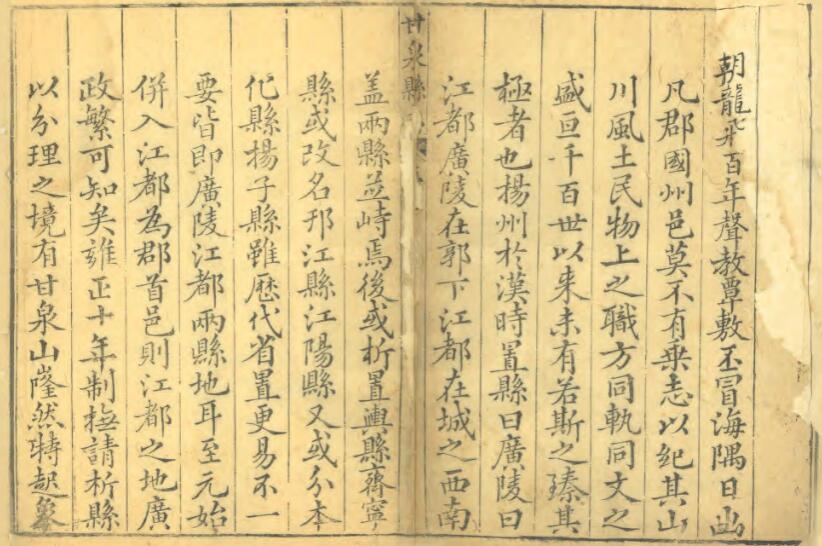 朝龍飛百年聲教覃敷丕冒海隅日出
凡郡國州邑莫不有乗志以紀其山
川風土民物上之職方同軌同文之
盛亘千百世以来未有若斯之臻其
極者也揚州於漢時置縣曰廣陵曰
江都廣陵在郭下江都在城之西南
甘泉縣
盖兩縣並峙焉後或析置輿縣齊寧
縣或改名邗江縣江陽縣又或分本
化縣揚子縣雖歷代省置更易不一
要皆即廣陵江都兩縣地耳至元始
併入江都為郡首邑則江都之地廣
政繁可知矣雍正十年制撫請析縣
以分理之境有甘泉山窿然特起